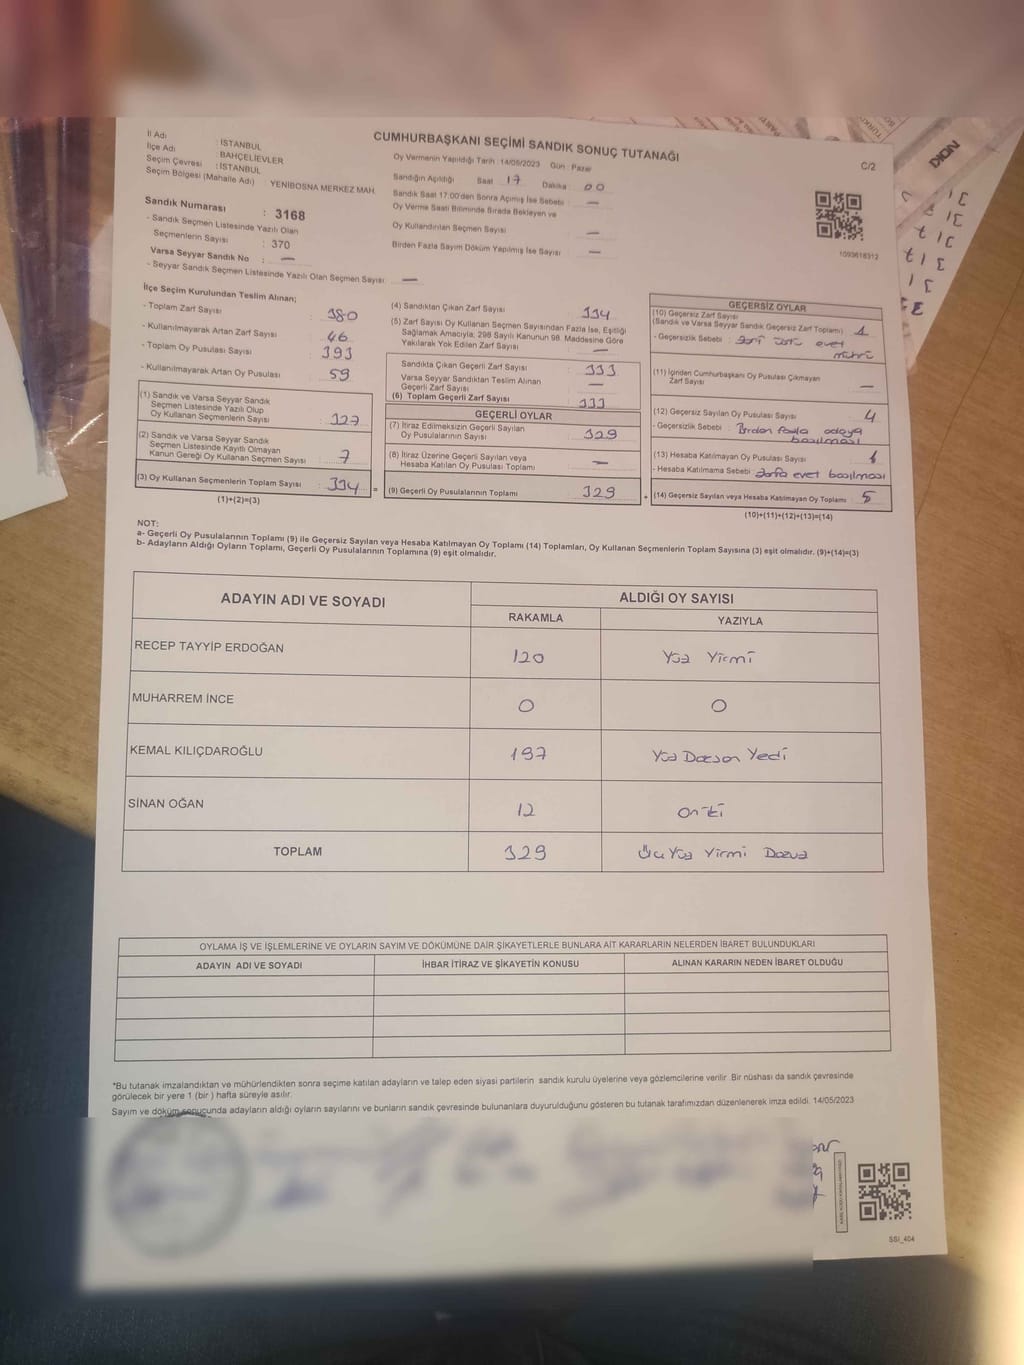 CUMHURBAŞKANI SEÇİMİ SANDIK SONUÇ TUTANAĞI
C/2
İl Adı : İSTANBUL
İlçe Adı : BAHÇELİEVLER
Seçim Çevresi : İSTANBUL
Seçim Bölgesi (Mahalle Adı) : YENİBOSNA MERKEZ MAH.
Sandık Numarası : 3168
- Sandık Seçmen Listesinde Yazılı Olan
Seçmenlerin Sayısı : 370
Varsa Seyyar Sandık No : —
- Seyyar Sandık Seçmen Listesinde Yazılı Olan Seçmen Sayısı: —
Oy Vermenin Yapıldığı Tarih :14/05/2023 Gün : Pazar
Sandığın Açıldığı Saat 17 Dakika : 00
Sandık Saat 17:00'den Sonra Açılmış İse Sebebi : —
Oy Verme Saati Bitiminde Sırada Bekleyen ve
Oy Kullandırılan Seçmen Sayısı : —
Birden Fazla Sayım Döküm Yapılmış İse Sayısı : —
1093618312
İlçe Seçim Kurulundan Teslim Alınan;
- Toplam Zarf Sayısı : 380
- Kullanılmayarak Artan Zarf Sayısı : 46
- Toplam Oy Pusulası Sayısı : 393
- Kullanılmayarak Artan Oy Pusulası : 59
(1) Sandık ve Varsa Seyyar Sandık
Seçmen Listesinde Yazılı Olup
Oy Kullanan Seçmenlerin Sayısı : 327
(2) Sandık ve Varsa Seyyar Sandık
Seçmen Listesinde Kayıtlı Olmayan
Kanun Gereği Oy Kullanan Seçmen Sayısı : 7
(3) Oy Kullanan Seçmenlerin Toplam Sayısı : 334 =
(1)+(2)=(3)
(4) Sandıktan Çıkan Zarf Sayısı : 334
(5) Zarf Sayısı Oy Kullanan Seçmen Sayısından Fazla İse, Eşitliği
Sağlamak Amacıyla; 298 Sayılı Kanunun 98. Maddesine Göre
Yakılarak Yok Edilen Zarf Sayısı : —
Sandıkta Çıkan Geçerli Zarf Sayısı : 333
Varsa Seyyar Sandıktan Teslim Alınan
Geçerli Zarf Sayısı : —
(6) Toplam Geçerli Zarf Sayısı : 333
GEÇERLİ OYLAR
(7) İtiraz Edilmeksizin Geçerli Sayılan
Oy Pusulalarının Sayısı : 329
(8) İtiraz Üzerine Geçerli Sayılan veya
Hesaba Katılan Oy Pusulası Toplamı : —
(9) Geçerli Oy Pusulalarının Toplamı : 329 +
GEÇERSİZ OYLAR
(10) Geçersiz Zarf Sayısı
(Sandık ve Varsa Seyyar Sandık Geçersiz Zarf Toplamı) : 1
- Geçersizlik Sebebi : Zarf üstü evet
mührü
(11) İçinden Cumhurbaşkanı Oy Pusulası Çıkmayan
Zarf Sayısı : —
(12) Geçersiz Sayılan Oy Pusulası Sayısı : 4
- Geçersizlik Sebebi : Birden fazla adaya
basılması
(13) Hesaba Katılmayan Oy Pusulası Sayısı :
- Hesaba Katılmama Sebebi : Zarfa evet basılması
(14) Geçersiz Sayılan veya Hesaba Katılmayan Oy Toplamı : 5
(10)+(11)+(12)+(13)=(14)
NOT:
a- Geçerli Oy Pusulalarının Toplamı (9) ile Geçersiz Sayılan veya Hesaba Katılmayan Oy Toplamı (14) Toplamları, Oy Kullanan Seçmenlerin Toplam Sayısına (3) eşit olmalıdır. (9)+(14)=(3)
b- Adayların Aldığı Oyların Toplamı, Geçerli Oy Pusulalarının Toplamına (9) eşit olmalıdır.
ADAYIN ADI VE SOYADI ALDIĞI OY SAYISI
RAKAMLA YAZIYLA
RECEP TAYYİP ERDOĞAN 120 Yüz Yirmi
MUHARREM İNCE 0 0
KEMAL KILIÇDAROĞLU 197 Yüz Doksan Yedi
SİNAN OĞAN 12 On iki
TOPLAM 329 Üç Yüz Yirmi Dokuz
OYLAMA İŞ VE İŞLEMLERİNE VE OYLARIN SAYIM VE DÖKÜMÜNE DAİR ŞİKAYETLERLE BUNLARA AİT KARARLARIN NELERDEN İBARET BULUNDUKLARI
ADAYIN ADI VE SOYADI İHBAR İTİRAZ VE ŞİKAYETİN KONUSU ALINAN KARARIN NEDEN İBARET OLDUĞU
*Bu tutanak imzalandıktan ve mühürlendikten sonra seçime katılan adayların ve talep eden siyasi partilerin sandık kurulu üyelerine veya gözlemcilerine verilir. Bir nüshası da sandık çevresinde
görülecek bir yere 1 (bir ) hafta süreyle asılır.
Sayım ve döküm sonucunda adayların aldığı oyların sayılarını ve bunların sandık çevresinde bulunanlara duyurulduğunu gösteren bu tutanak tarafımızdan düzenlenerek imza edildi. 14/05/2023
SSI_404